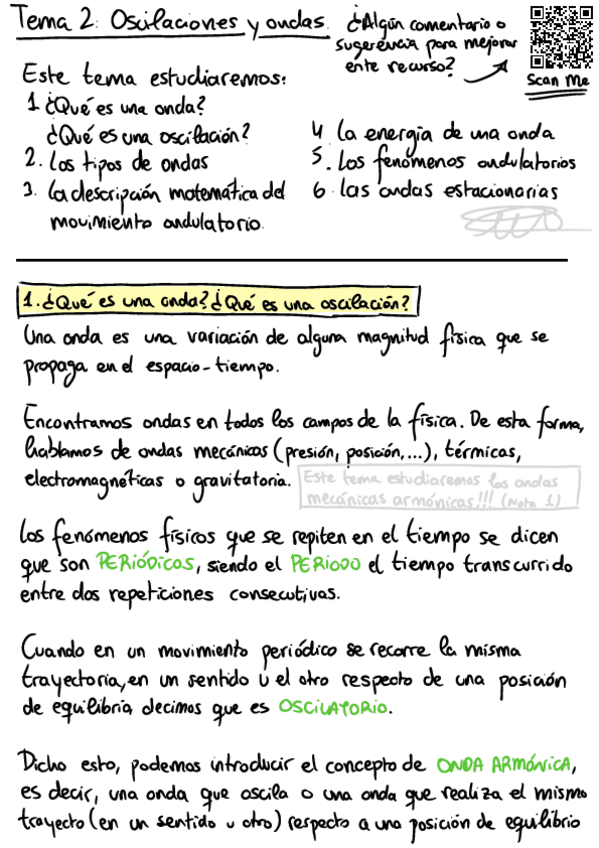 Tema 2: Oscilaciones y ondas.
¿Algún comentario o
sugerencia para mejorar
este recurso?
Scan Me
Este tema estudiaremos:
1 ¿Qué es una onda?
¿Qué es una oscilación?
2. Los tipos de ondas
3. La descripción matemática del
movimiento ondulatorio.
4 La energía de una onda
5. Los fenómenos ondulatorios
6 Las ondas estacionarias
1. ¿Qué es una onda? ¿Qué es una oscilación?
Una onda es una variación de alguna magnitud física que se
propaga en el espacio-tiempo.
Encontramos ondas en todos los campos de la física. De esta forma,
hablamos de ondas mecánicas (presión, posición,...), térmicas,
electromagnéticas o gravitatoria.
Este tema estudiaremos las ondas
mecánicas armónicas!!! (Nota 1)
Los fenómenos físicos que se repiten en el tiempo se dicen
que son PERIÓDICOS, siendo el PERIODO el tiempo transcurrido
entre dos repeticiones consecutivas.
Cuando en un movimiento periódico se recorre la misma
trayectoria, en un sentido u el otro respecto de una posición
de equilibrio, decimos que es OSCILATORIO.
Dicho esto, podemos introducir el concepto de ONDA ARMÓNICA,
es decir, una onda que oscila o una onda que realiza el mismo
trayecto (en un sentido u otro) respecto a una posición de equilibrio